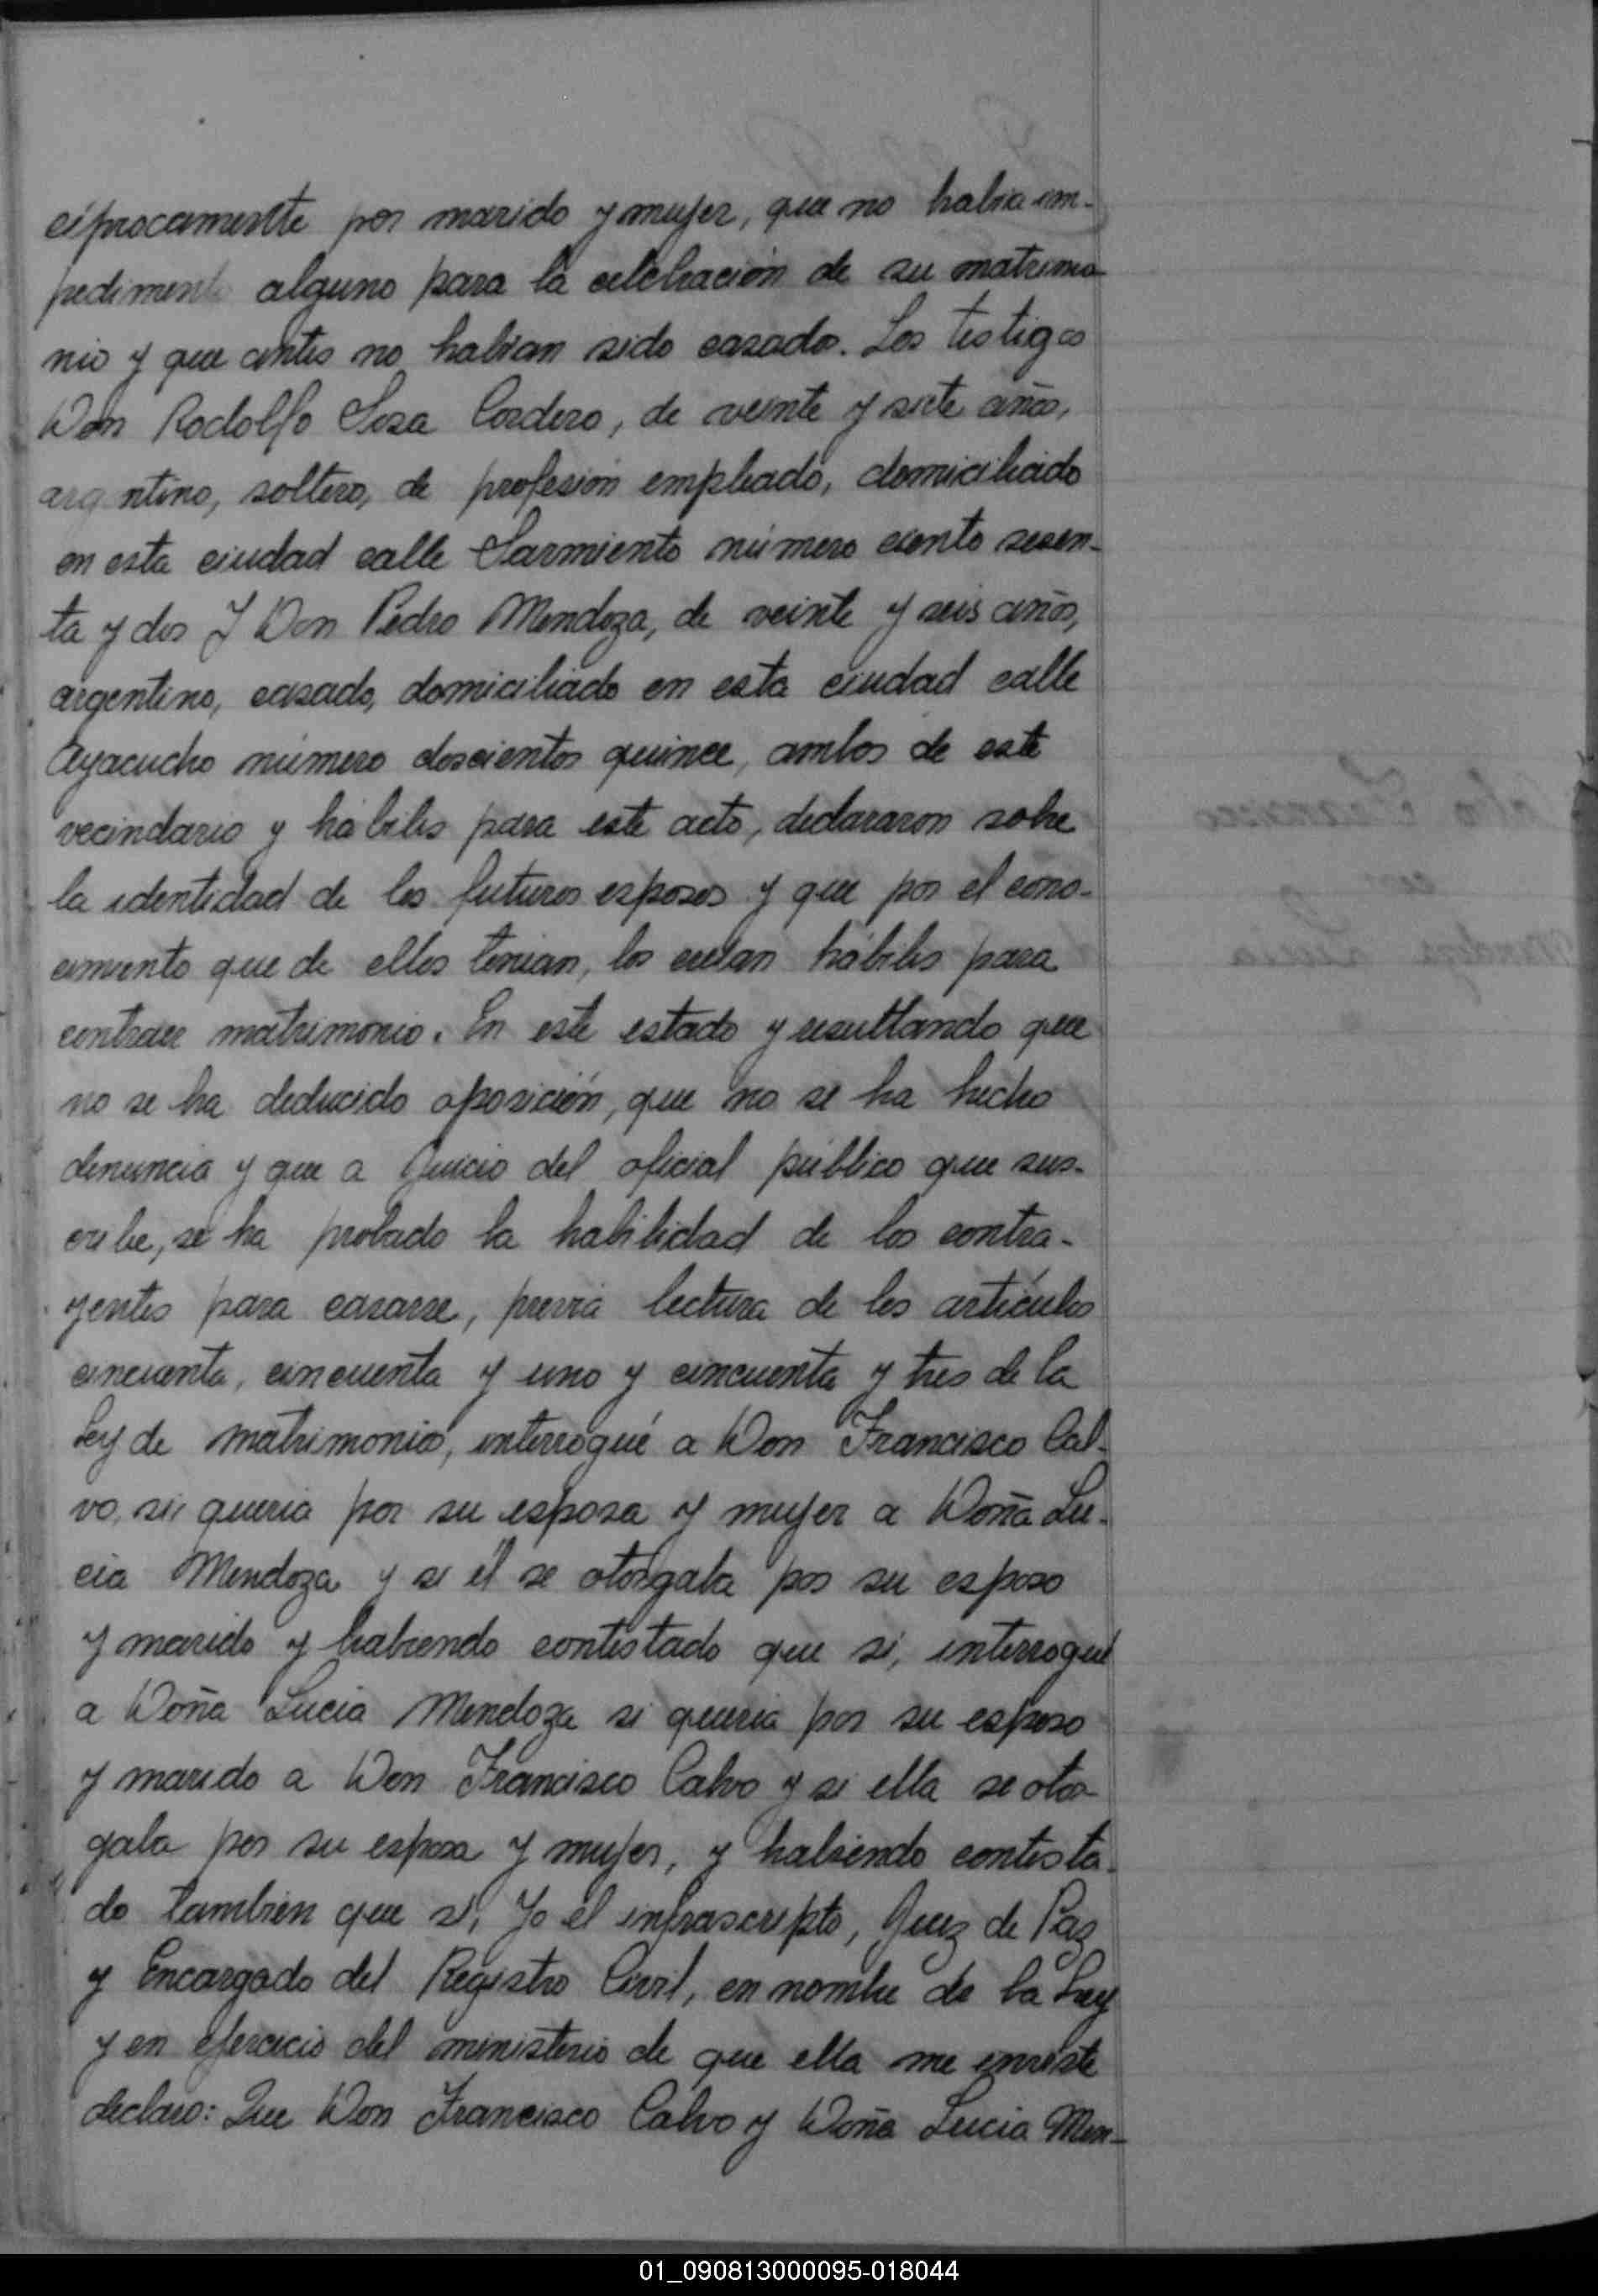 ciprocamente por marido y mujer, que no habia im-
pediment alguno para la celebración de su matrimo-
nio y que antes no habian sido casados. Los testigos
Don Rodolfo Sosa Cordero, de veinte y siete años,
argentino, soltero, de profesión empleado, domiciliado
en esta ciudad calle Sarmiento número ciento sesen-
ta y dos Y Don Pedro Mendoza, de veinte y seis años,
argentino, casado, domiciliado en esta ciudad calle
Ayacucho número doscientos quince, ambos de este
vecindario y hábiles para este acto, declararon sobre
la identidad de los futuros esposos y que por el cono-
cimiento que de ellos tenian, los creian hábiles para
contraer matrimonio. En este estado y resultando que
no se ha deducido oposición, que no se ha hecho
denuncia y que a juicio del oficial público que sus-
cribe, se ha probado la habilidad de los contra-
yentes para casarse, previa lectura de los artículos
cincuenta, cincuenta y uno y cincuenta y tres de la
Ley de matrimonio, interrogué a Don Francisco Cal-
vo, si queria por su esposa y mujer a Doña Lu-
cia Mendoza y si él se otorgaba por su esposo
y marido y habiendo contestado que si, interrogué
a Doña Lucia Mendoza si queria por su esposo
y marido a Don Francisco Calvo y si ella se otor-
gaba por su esposa y mujer, y habiendo contesta-
do tambien que si, Yo el infrascripto, Juez de Paz
y Encargado del Registro Civil, en nombre de la Ley
y en ejercicio del ministerio de que ella me enviste
declaro: Que Don Francisco Calvo y Doña Lucia Men-
01_090813000095-018044